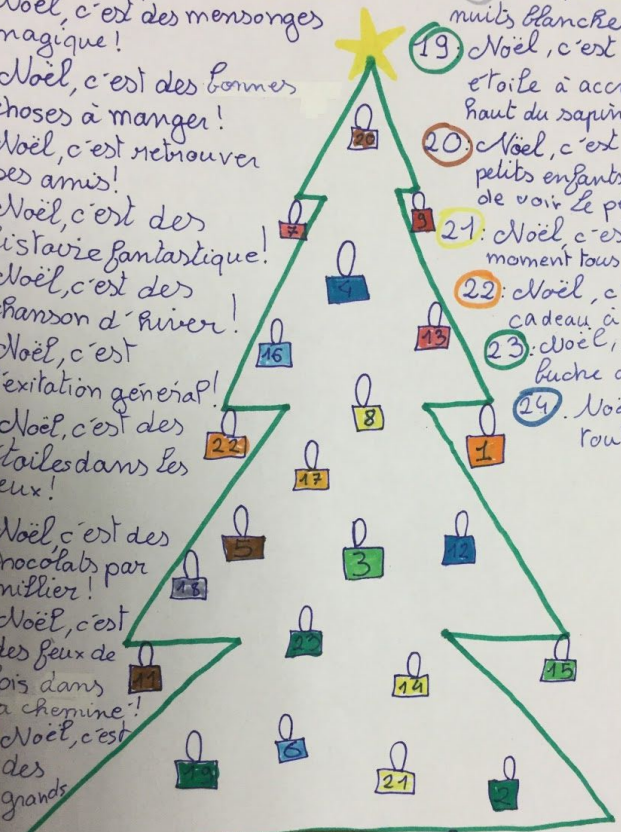 Noël, c'est des mensonges
magique!
Noël, c'est des bonnes
choses à manger!
Noël, c'est retrouver
ses amis!
Noël, c'est des
istoire fantastique!
Noël, c'est des
hanson d'hiver!
Noël, c'est
l'exitation général!
Noël, c'est des
toiles dans les
eux!
Noël, c'est des
hocolats par
millier!
Noël, c'est
des feux de
ois dans
a cheminé!
Noël, c'est
des
grands
20
7
9
4
16
13
8
22
1
17
5
3
12
18
23
11
14
15
6
19
21
2
nuits blanche
19: Noël, c'est
étoile à acc
haut du sapin
20: Noël, c'est
petits enfants
de voir le p
21: Noël, c'es
moment tous
22: Noël, c
cadeau à
23: Noël,
buche
24. No
rou